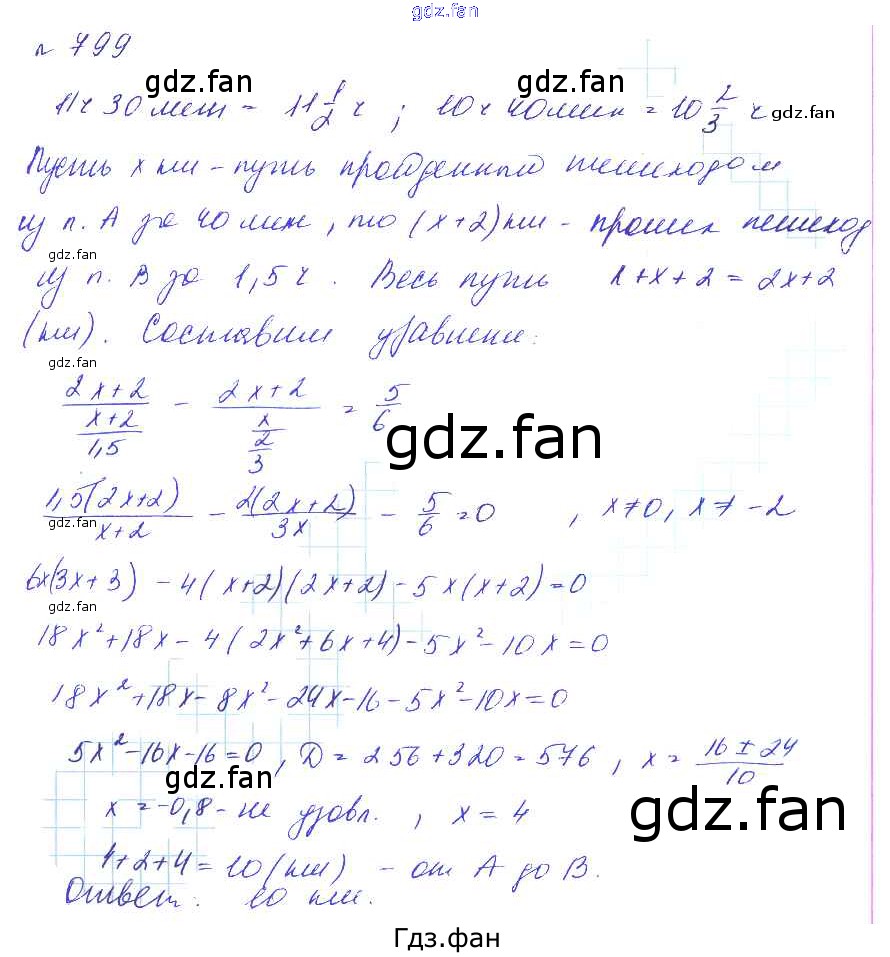 gdz.fan
№ 799
gdz.fan gdz.fan
11ч 30мин = 11 1/2 ч ; 10ч 40мин = 10 2/3 ч gdz.fan
Пусть x км - путь пройденный пешеходом
из п. А за 40 мин, то (x+2)км - прошел пешеход
gdz.fan
из п. В за 1,5 ч. Весь путь x+x+2 = 2x+2
(км). Составим уравнение:
gdz.fan
(2x+2)/((x+2)/1,5) - (2x+2)/(x/(2/3)) = 5/6
gdz.fan
1,5(2x+2)/(x+2) - 2(2x+2)/(3x) - 5/6 = 0 , x≠0, x≠-2
gdz.fan
6x(3x+3) - 4(x+2)(2x+2) - 5x(x+2) = 0
gdz.fan
18x² + 18x - 4(2x²+6x+4) - 5x² - 10x = 0
18x² + 18x - 8x² - 24x - 16 - 5x² - 10x = 0
5x² - 16x - 16 = 0 , D = 256 + 320 = 576 , x = (16 ± 24)/10
gdz.fan
x = -0,8 - не удовл. , x = 4
gdz.fan
4+2+4 = 10 (км) - от А до В.
Ответ: 10 км.
Гдз.фан